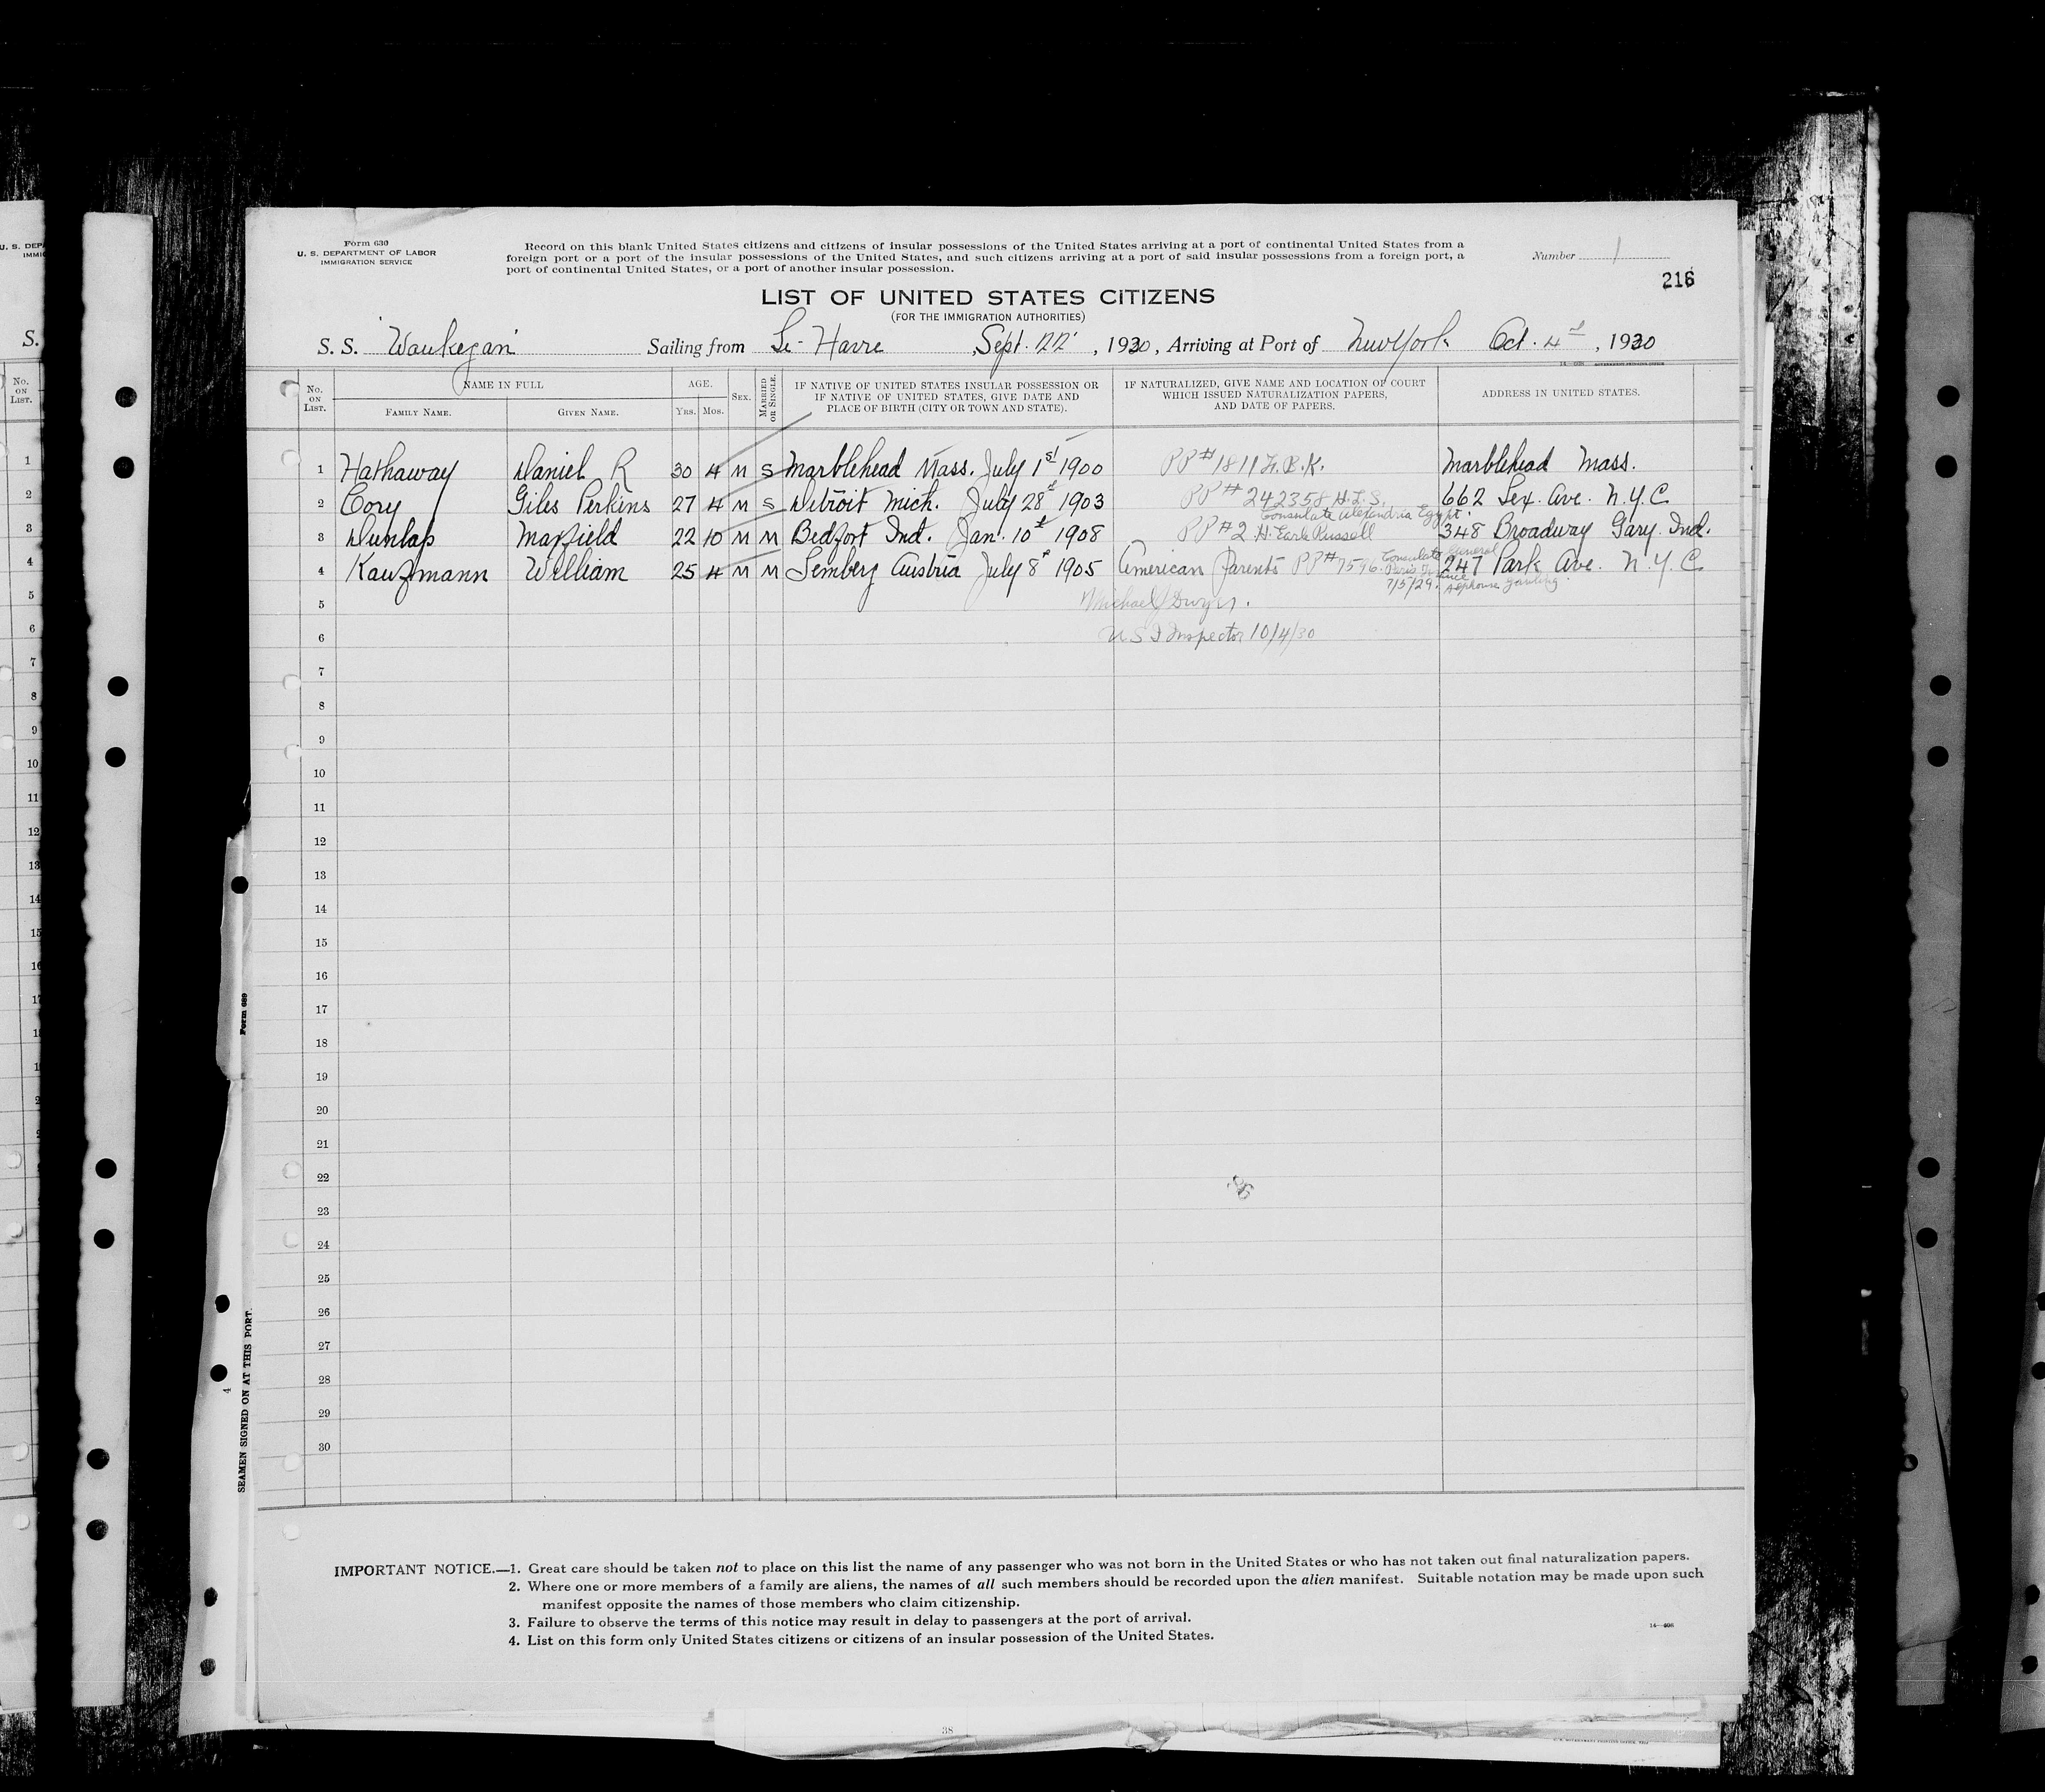 Form 630
U. S. DEPARTMENT OF LABOR
IMMIGRATION SERVICE
Record on this blank United States citizens and citizens of insular possessions of the United States arriving at a port of continental United States from a
foreign port or a port of the insular possessions of the United States, and such citizens arriving at a port of said insular possessions from a foreign port, a
port of continental United States, or a port of another insular possession.
Number 1
216
LIST OF UNITED STATES CITIZENS
(FOR THE IMMIGRATION AUTHORITIES)
S. S. "Waukegan" Sailing from Le-Havre, Sept. 22, 1930, Arriving at Port of New York Oct. 4th, 1930
No. ON LIST. NAME IN FULL AGE. SEX. MARRIED OR SINGLE. IF NATIVE OF UNITED STATES INSULAR POSSESSION OR IF NATIVE OF UNITED STATES, GIVE DATE AND PLACE OF BIRTH (CITY OR TOWN AND STATE). IF NATURALIZED, GIVE NAME AND LOCATION OF COURT WHICH ISSUED NATURALIZATION PAPERS, AND DATE OF PAPERS. ADDRESS IN UNITED STATES.
FAMILY NAME. GIVEN NAME. YRS. MOS.
1 Hathaway Daniel R 30 4 M S Marblehead Mass. July 1st 1900 PP# 1811 F.B.K. Marblehead Mass.
2 Cory Giles Perkins 27 4 M S Detroit Mich. July 28th 1903 PP# 242358 H.L.S. 662 Lex. Ave. N.Y.C
Consulate Alexandria Egypt.
3 Dunlap Maxfield 22 10 M M Bedfort Ind. Jan. 10th 1908 PP# 2 H. Earle Russell 348 Broadway Gary. Ind.
4 Kaufmann William 25 4 M M Lemberg Austria July 8th 1905 American Parents PP# 7576. Consulate General Paris France 247 Park Ave. N.Y.C
7/5/29. Alphonse Gauling.
5 Michael J Dwyer.
6 U S I Inspector 10/4/30
7
8
9
10
11
12
13
14
15
16
17
18
19
20
21
22
23
24
25
26
27
28
29
30
IMPORTANT NOTICE.—1. Great care should be taken not to place on this list the name of any passenger who was not born in the United States or who has not taken out final naturalization papers.
2. Where one or more members of a family are aliens, the names of all such members should be recorded upon the alien manifest. Suitable notation may be made upon such
manifest opposite the names of those members who claim citizenship.
3. Failure to observe the terms of this notice may result in delay to passengers at the port of arrival.
4. List on this form only United States citizens or citizens of an insular possession of the United States.
14—406
Form 689
SEAMEN SIGNED ON AT THIS PORT.
4
38